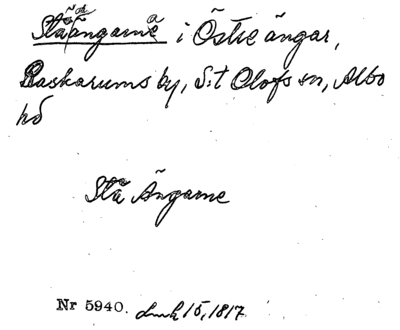 Stäängarne i Östre ängar,
Raskarums by, S:t Olofs sn, Albo
hd
Stä Ängarne
Nr 5940. Lunh 15, 1817